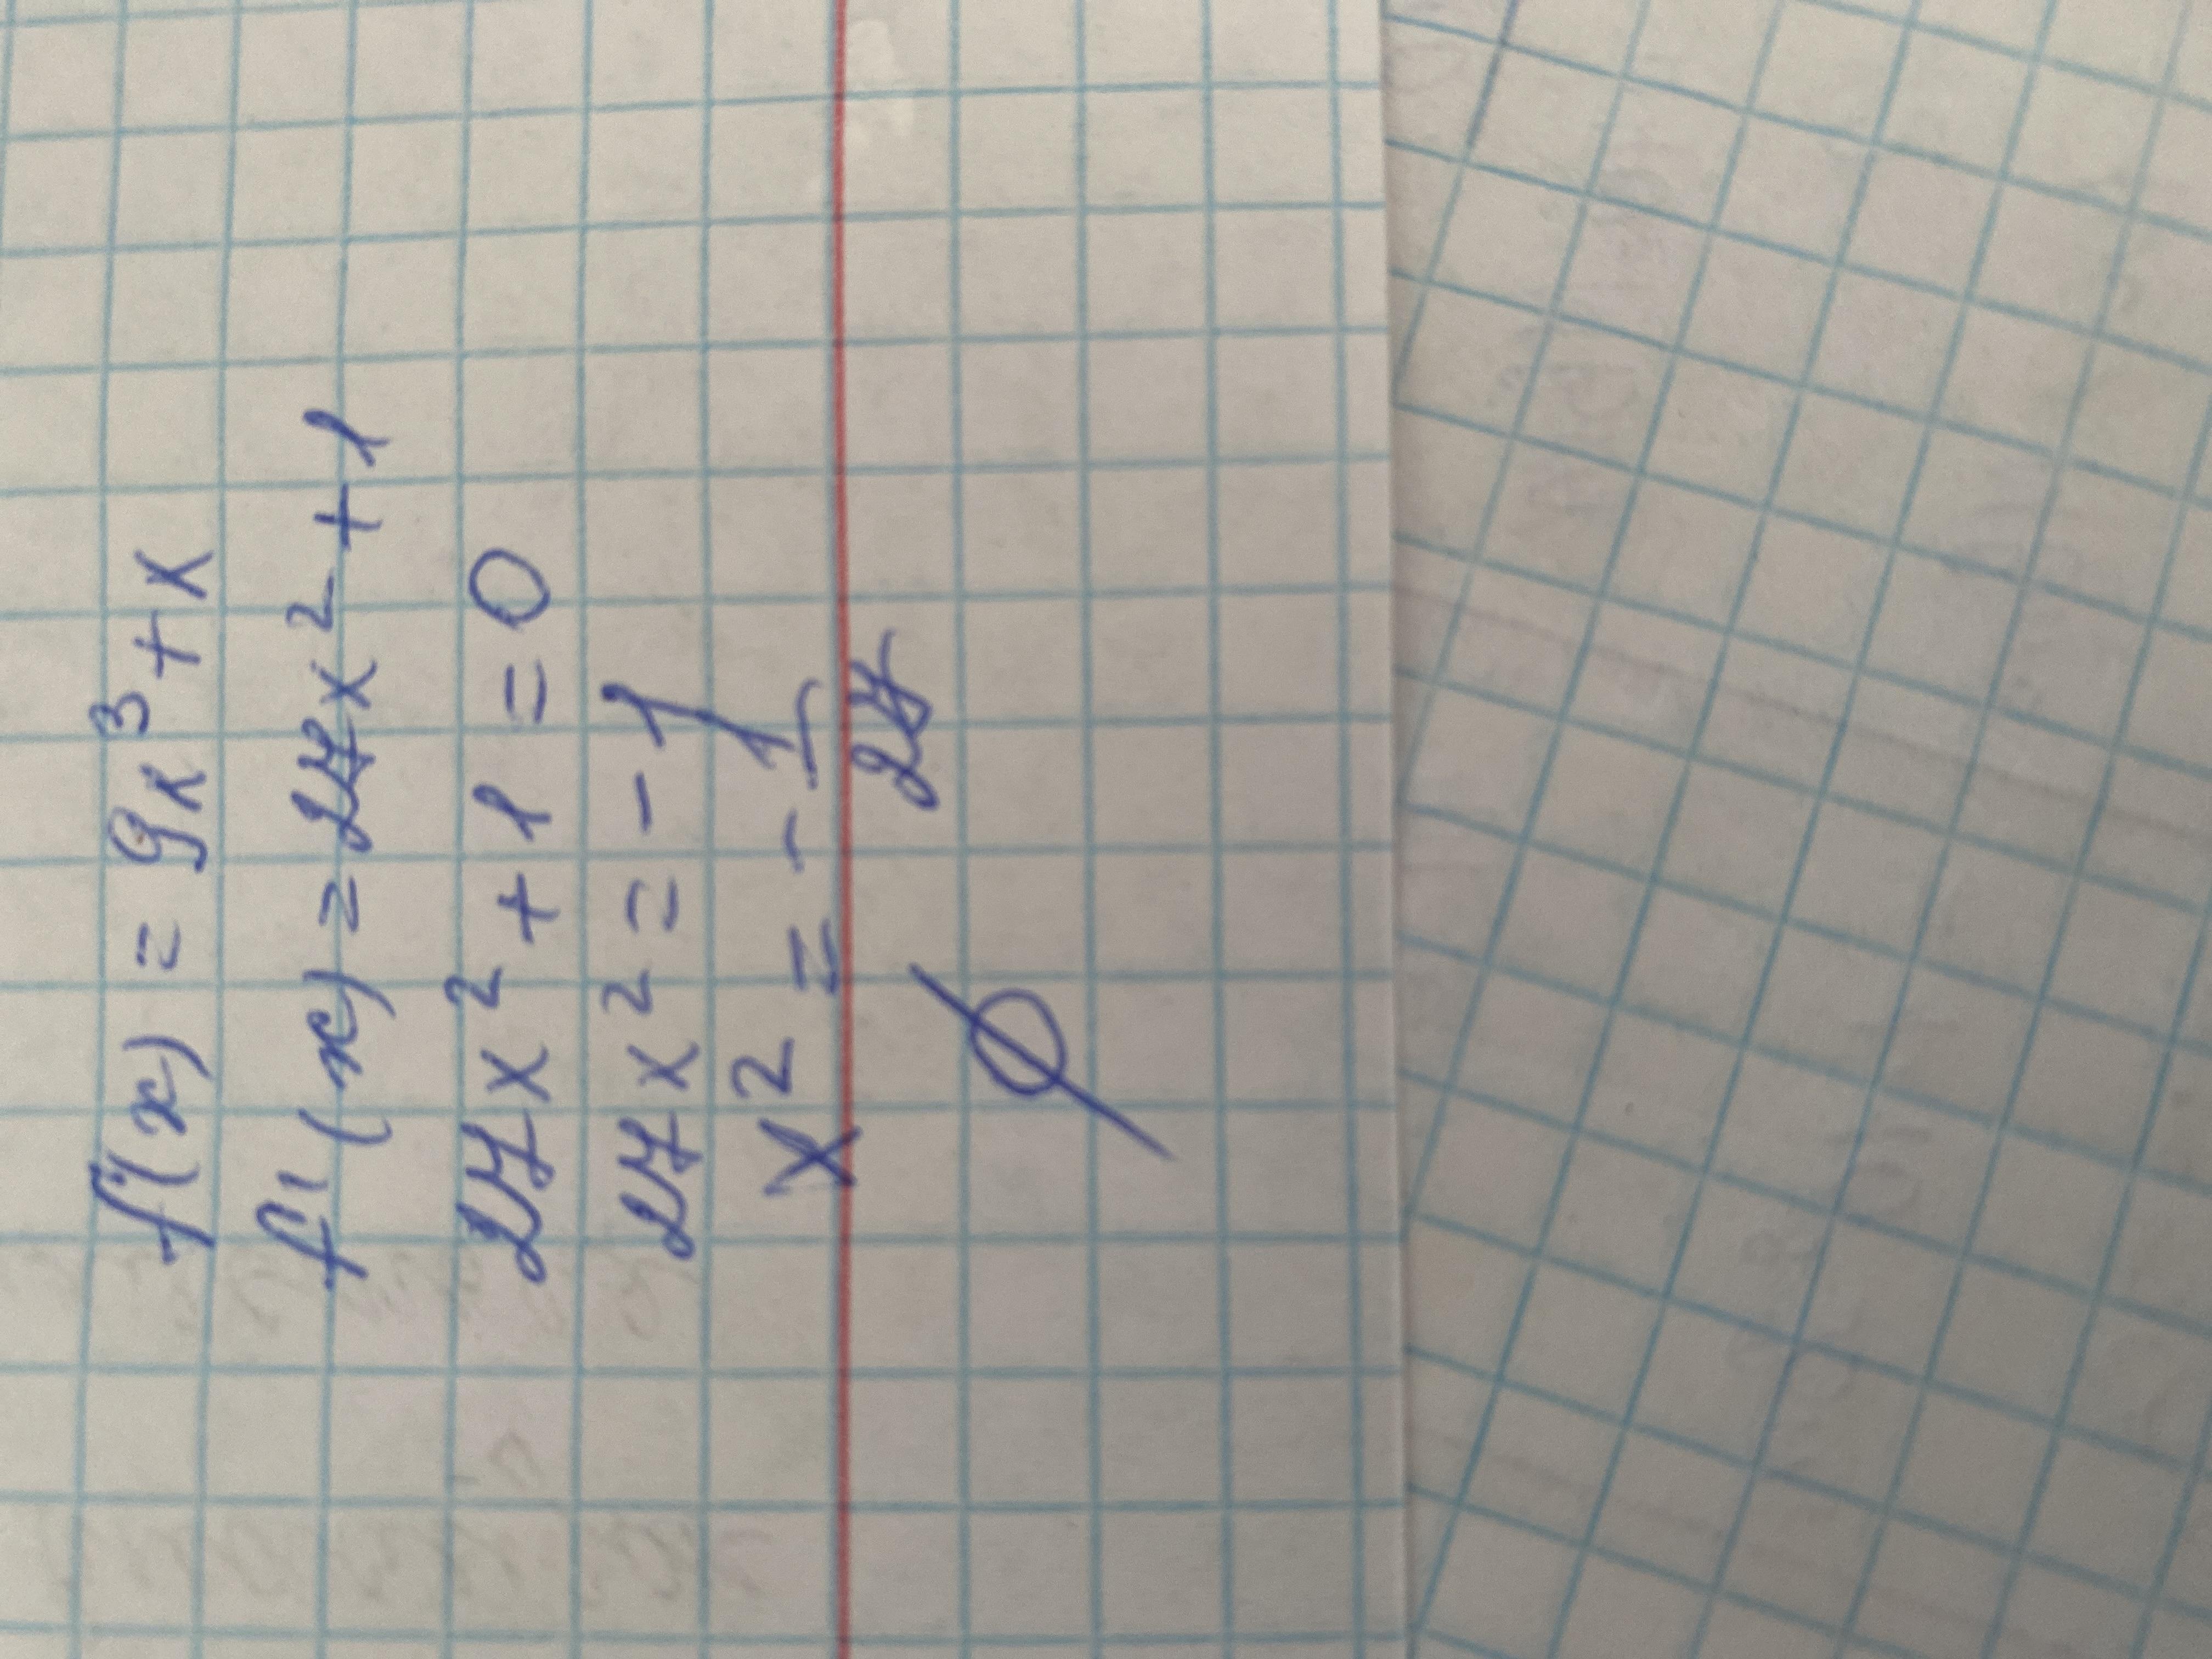 f(x) = 9x³ + x
f'(x) = 27x² + 1
27x² + 1 = 0
27x² = -1
x² = - 1/27
∅